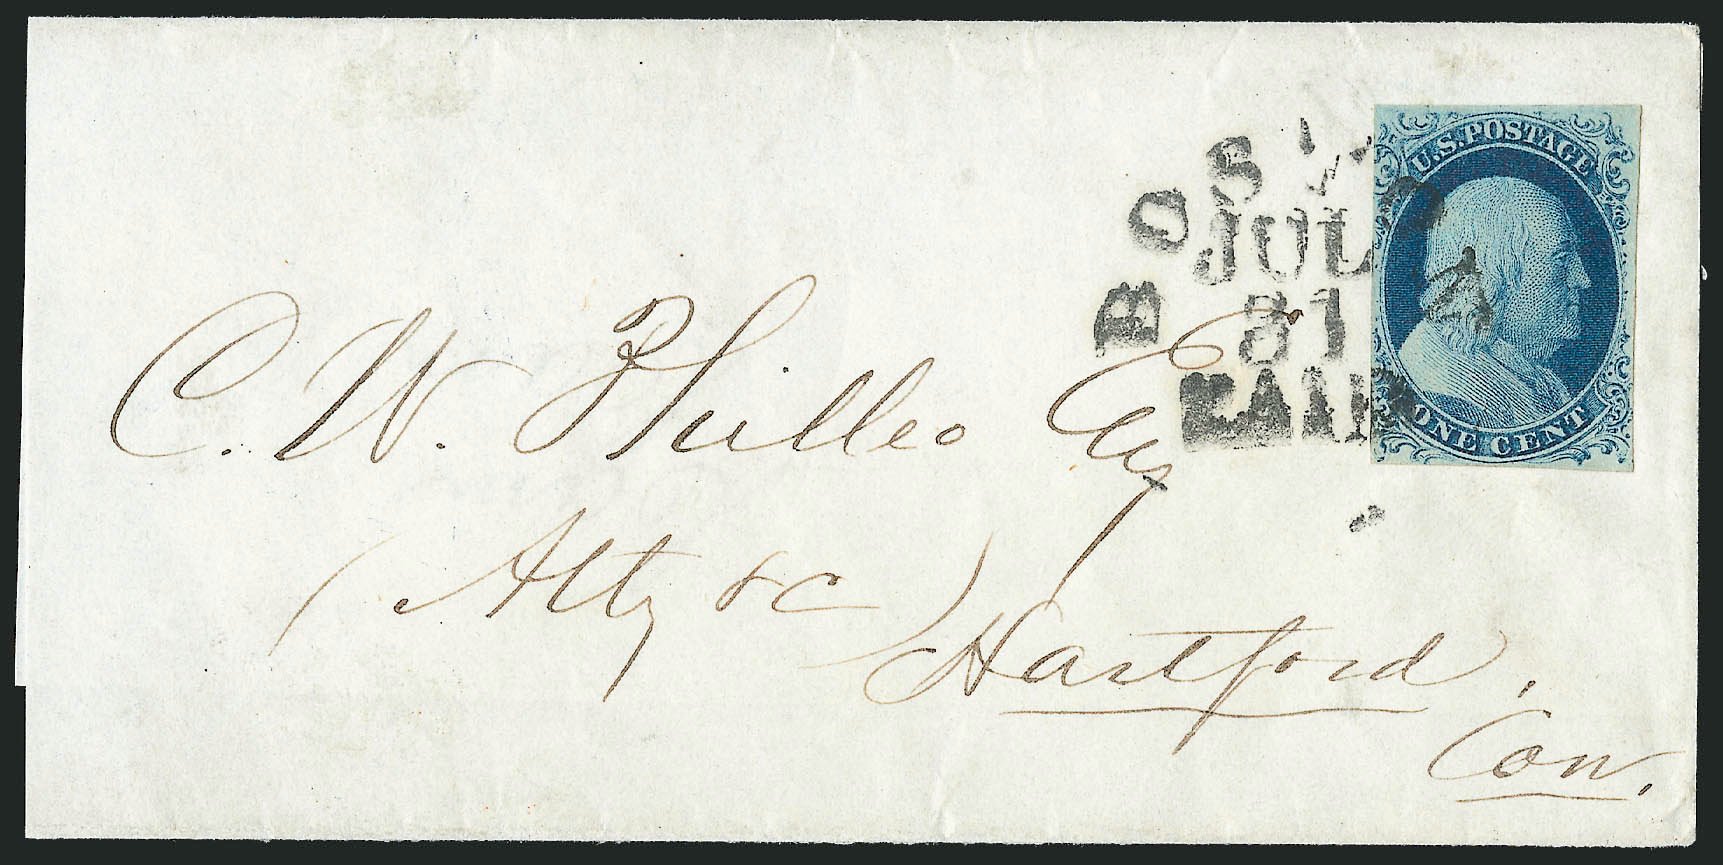 U.S. POSTAGE
ONE CENT
BOSTON
JUL
31
PAID
C. W. Philleo Esq
(Atty &c)
Hartford.
Con.